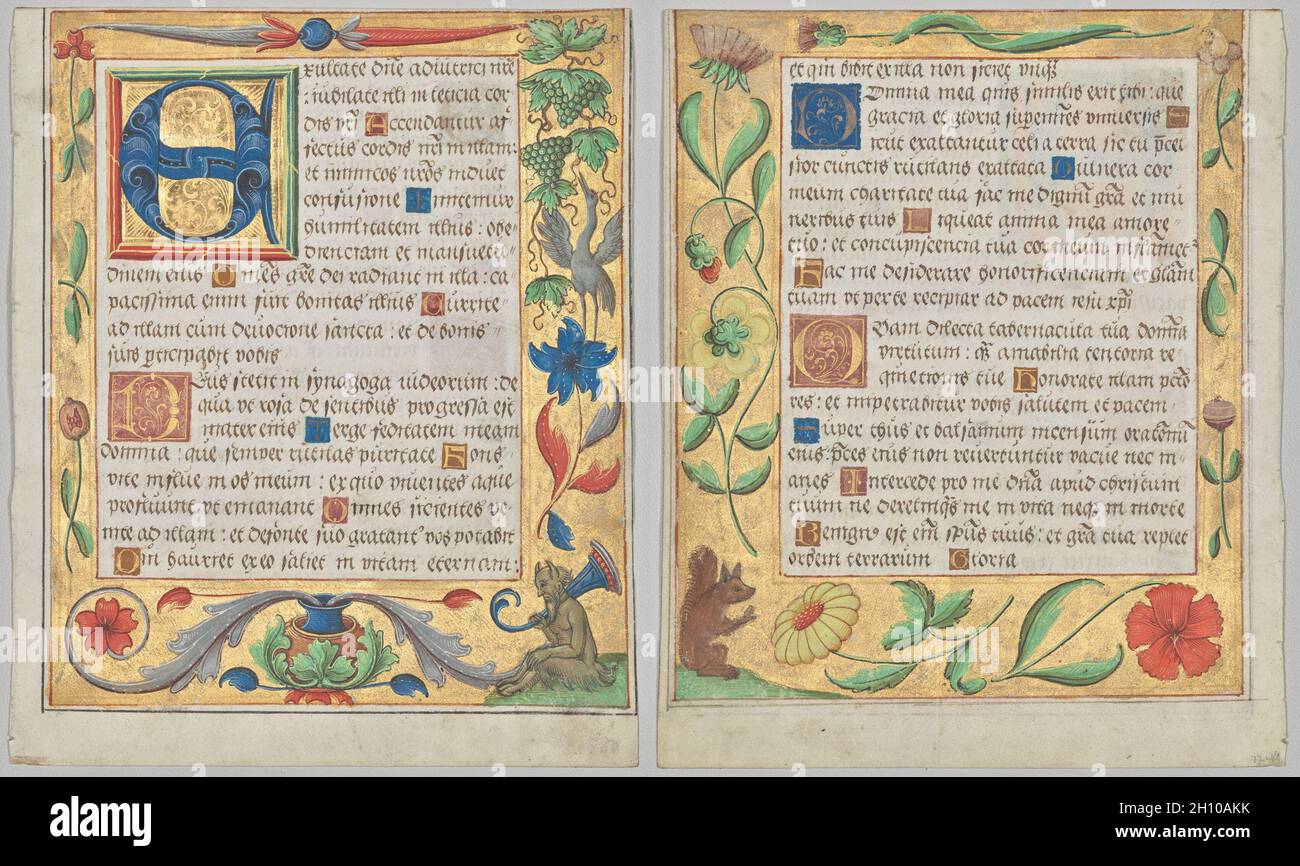 Exultate dño adiutrici nr̃e
: iubilate illi in leticia cor
dis vr̃i Accendantur af
fectus cordis nr̃i in illam:
et inimicos nr̃os induet
confusione Imitemur
humilitatem illius: obe
dienciam et mansuetu
dinem eius Omẽs gr̃e dei radiant in illa: ca
pacissima enim fuit bonitas illius Currite
ad illam cum deuocione sancta: et de bonis
suis participabit vobis
Deus stetit in synagoga iudeorum: de
qua vt rosa de sentibus progressa est
mater eius Terge feditatem meam
domina: que semper rutilas puritate Fons
vite influe in os meum: ex quo viuentes aque
profluunt vt emanant Omnes sicientes ve
nite ad illam: et de fonte suo gratant̃ vos potabit
Qui haurret ex eo saliet in vitam eternam:
et qui bibit ex illa non siciet vnq̃
Domina mea quis similis erit tibi: que
gracia et gloria superueñis vniuersis S
icut exaltantur celi a terra sic tu p̃cel
sior cunctis rutilans exaltata Vulnera cor
meum charitate tua fac me dignũ gr̃a et mu
neribus tuis Liqueat anima mea amore
tuo: et concupiscencia tua cor meum inflamet
Fac me desiderare honorificenciam et glãm
tuam vt per te recipiar ad pacem iesu xp̃i
Quam dilecta tabernacula tua domĩa
virtutum: q̃ amabilia tentoria re
quietionis tue Honorate illam pctõ
res: et impetrabitur vobis salutem et pacem
Super thus et balsamum incensum oratonũ
eius: p̃ces eius non reuertuntur vacue nec in
anes Intercede pro me dña apud christum
tuum ne derelinq̃s me in vita neq̃ in morte
Benign9 est em̃ sp̃us tuus: et gr̃a tua replet
orbem terrarum Gloria
alamy
alamy
a
2H10AKK